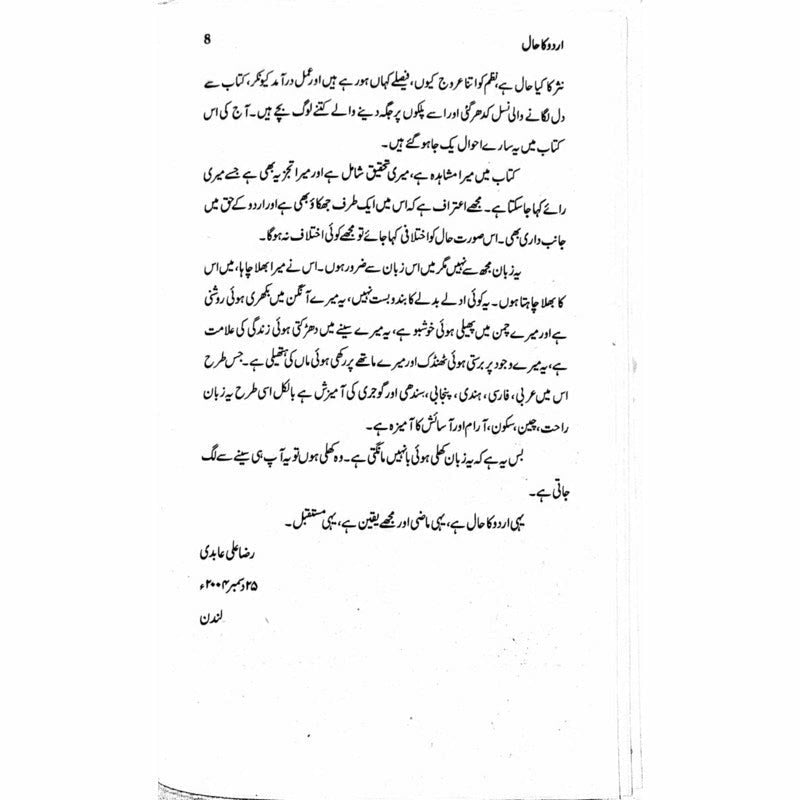 اردو کا حال 8
نثر کا کیا حال ہے، نظم کو اتنا عروج کیوں، فیصلے کہاں ہو رہے ہیں اور عمل در آمد کیونکر، کتاب سے
دل لگانے والی نسل کدھر گئی اور اسے پلکوں پر جگہ دینے والے کتنے لوگ بچے ہیں۔ آج کی اس
کتاب میں یہ سارے احوال یک جا ہو گئے ہیں۔
کتاب میں میرا مشاہدہ ہے، میری تحقیق شامل ہے اور میرا تجزیہ بھی ہے جسے میری
رائے کہا جا سکتا ہے۔ مجھے اعتراف ہے کہ اس میں ایک طرف جھکاؤ بھی ہے اور اردو کے حق میں
جانب داری بھی۔ اس صورت حال کو اختلافی کہا جائے تو مجھے کوئی اختلاف نہ ہوگا۔
یہ زبان مجھ سے نہیں مگر میں اس زبان سے ضرور ہوں۔ اس نے میرا بھلا چاہا، میں اس
کا بھلا چاہتا ہوں۔ یہ کوئی ادلے بدلے کا بندوبست نہیں، یہ میرے آنگن میں بکھری ہوئی روشنی
ہے اور میرے چمن میں پھیلی ہوئی خوشبو ہے، یہ میرے سینے میں دھڑکتی ہوئی زندگی کی علامت
ہے، یہ میرے وجود پر برستی ہوئی ٹھنڈک اور میرے ماتھے پر رکھی ہوئی ماں کی ہتھیلی ہے۔ جس طرح
اس میں عربی، فارسی، ہندی، پنجابی، سندھی اور گوجری کی آمیزش ہے بالکل اسی طرح یہ زبان
راحت، چین، سکون، آرام اور آسائش کا آمیزہ ہے۔
بس یہ ہے کہ یہ زبان کھلی ہوئی بانہیں مانگتی ہے۔ وہ کھلی ہوں تو یہ آپ ہی سینے سے لگ
جاتی ہے۔
یہی اردو کا حال ہے، یہی ماضی اور مجھے یقین ہے، یہی مستقبل۔
رضا علی عابدی
۲۵ دسمبر ۲۰۰۴ء
لندن